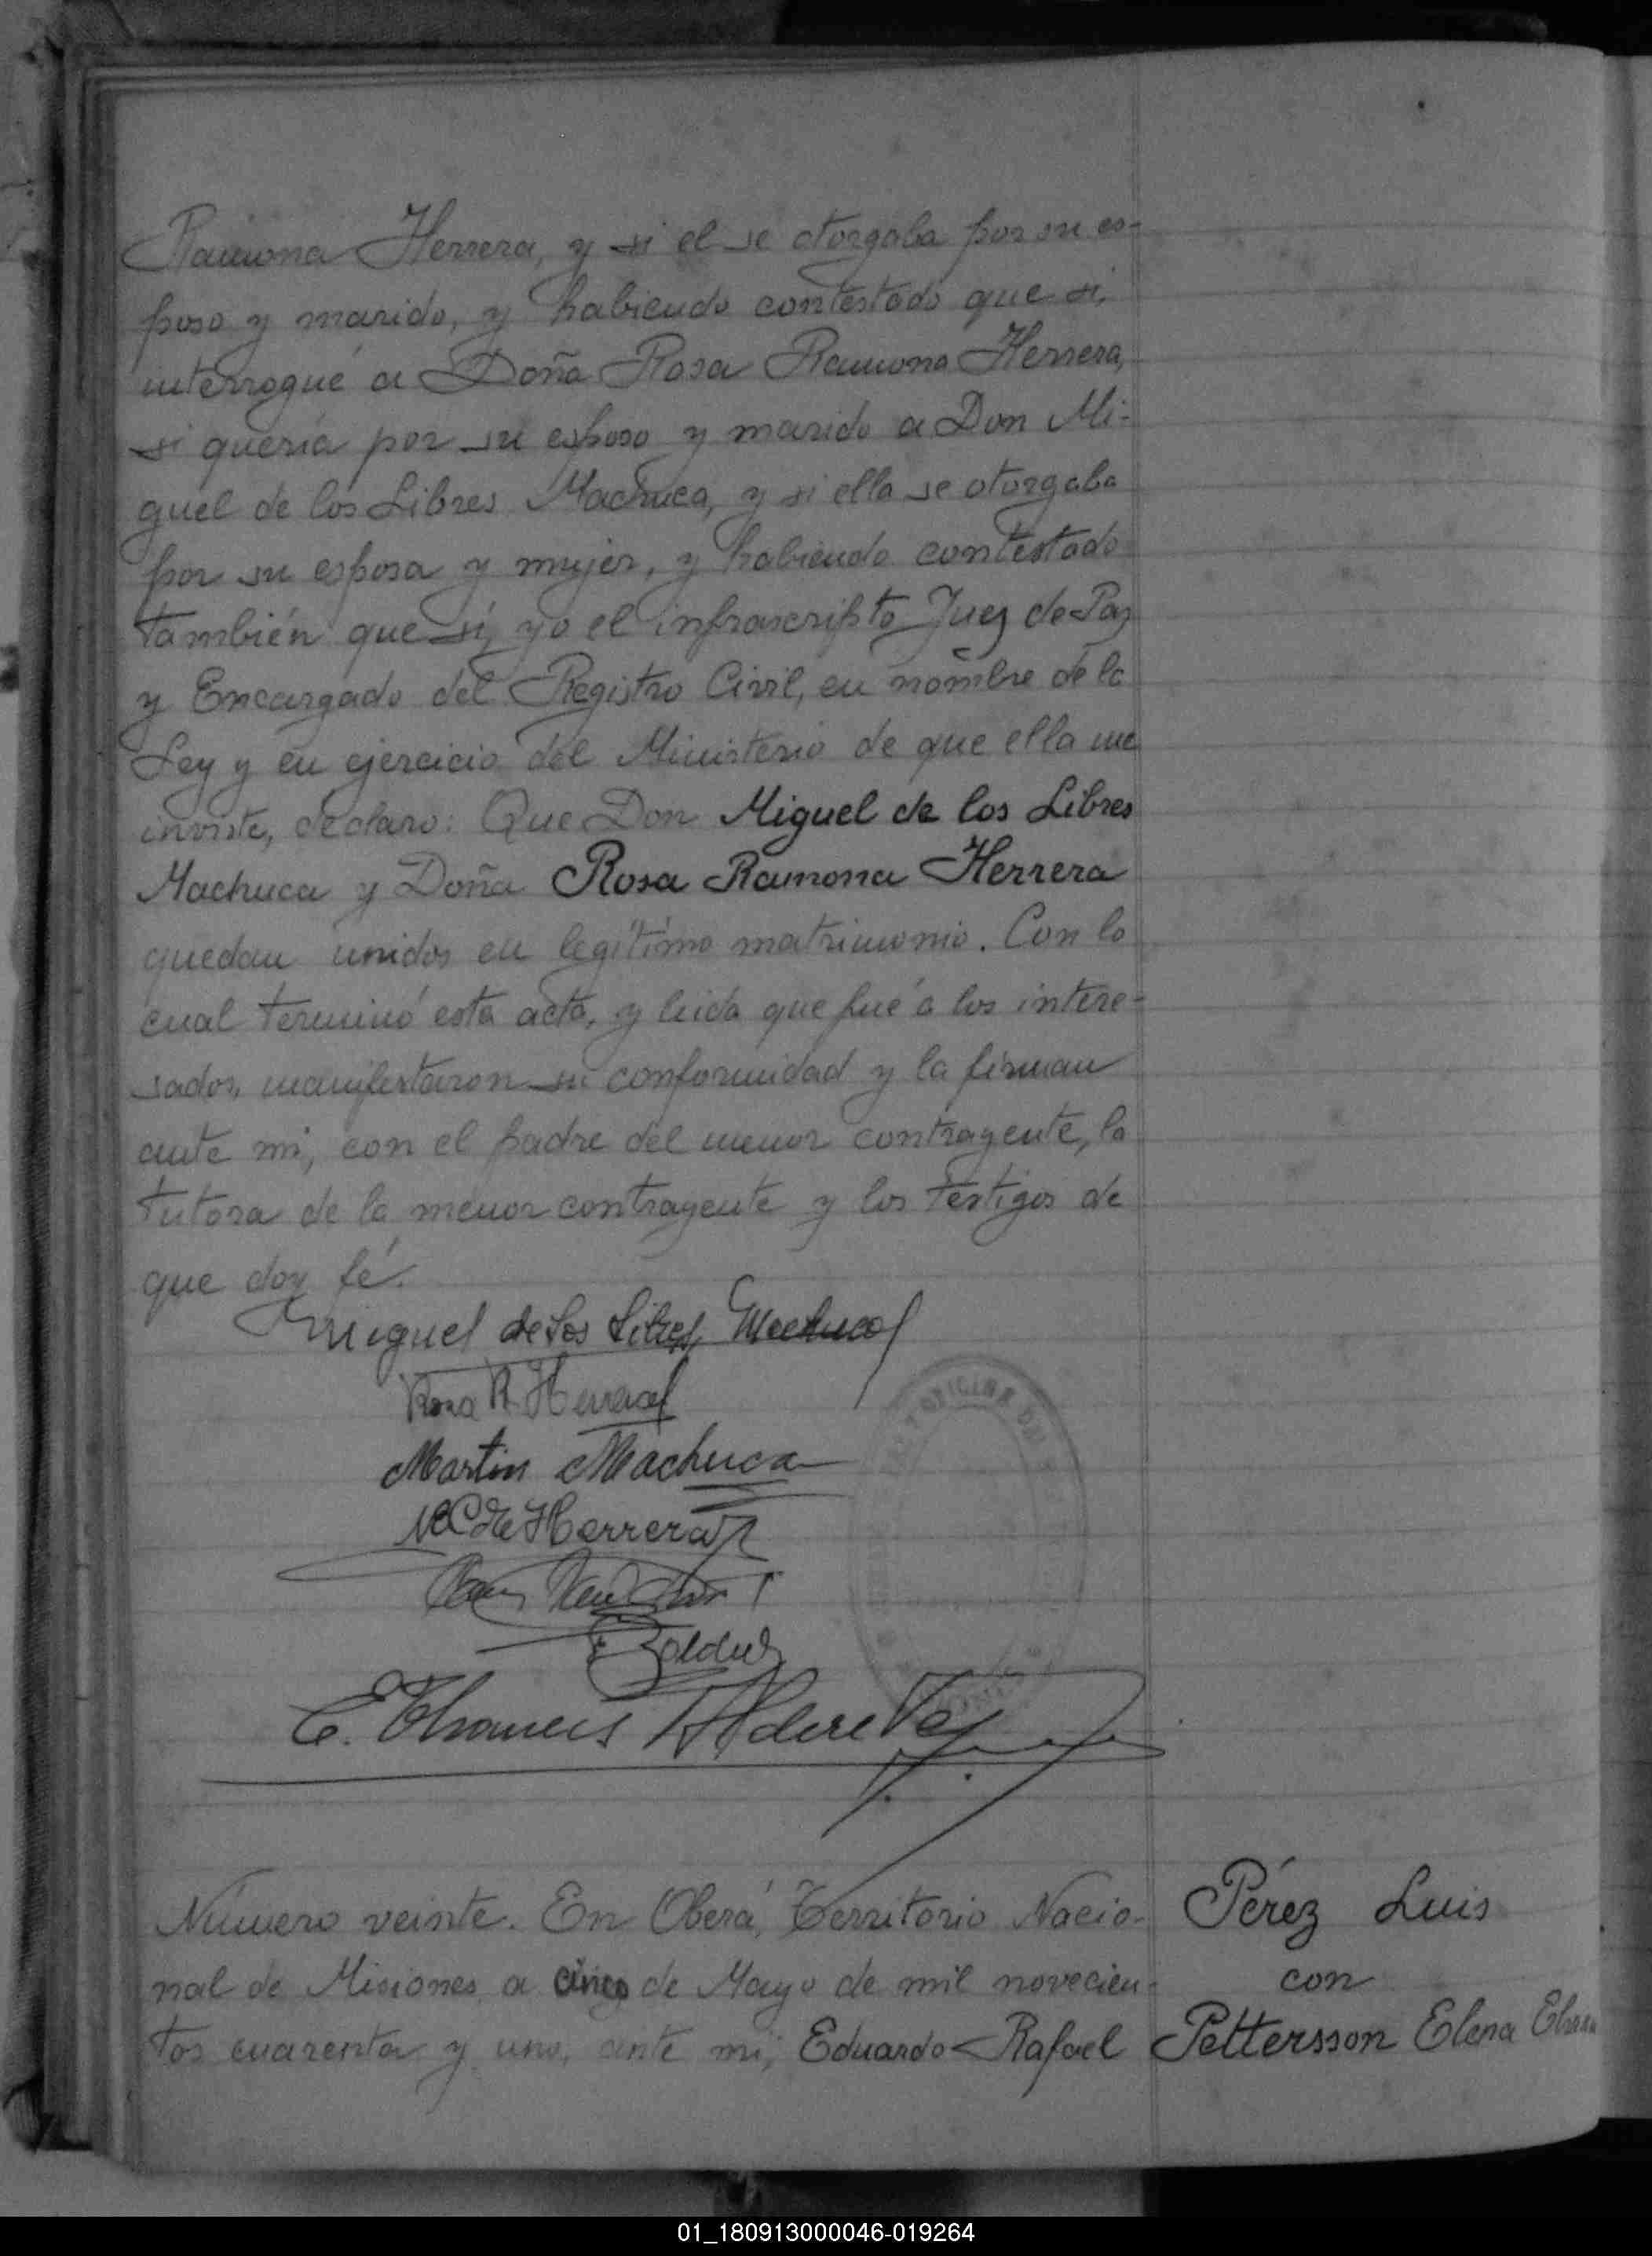 Ramona Herrera, y si el se otorgaba por su es-
poso y marido, y habiendo contestado que si,
interrogué a Doña Rosa Ramona Herrera,
si quería por su esposo y marido a Don Mi-
guel de los Libres Machuca, y si ella se otorgaba
por su esposa y mujer, y habiendo contestado
también que sí, yo el infrascripto Juez de Paz
y Encargado del Registro Civil, en nombre de la
Ley y en ejercicio del Ministerio de que ella me
inviste, declaro: Que Don Miguel de los Libres
Machuca y Doña Rosa Ramona Herrera
quedan unidos en legítimo matrimonio. Con lo
cual terminó esta acta, y leida que fué a los intere-
sados, manifestaron su conformidad y la firman
ante mi, con el padre del menor contrayente, la
tutora de la menor contrayente y los testigos de
que doy fé.
Miguel de los Libres Machuca
Rosa R. Herrera
Martin Machuca
de Herrera
OFICINA DEL
Número veinte. En Oberá, Territorio Nacio-
nal de Misiones, a cinco de Mayo de mil novecien-
tos cuarenta y uno, ante mi, Eduardo Rafael
Pérez Luis
con
Pettersson Elena
01_180913000046-019264